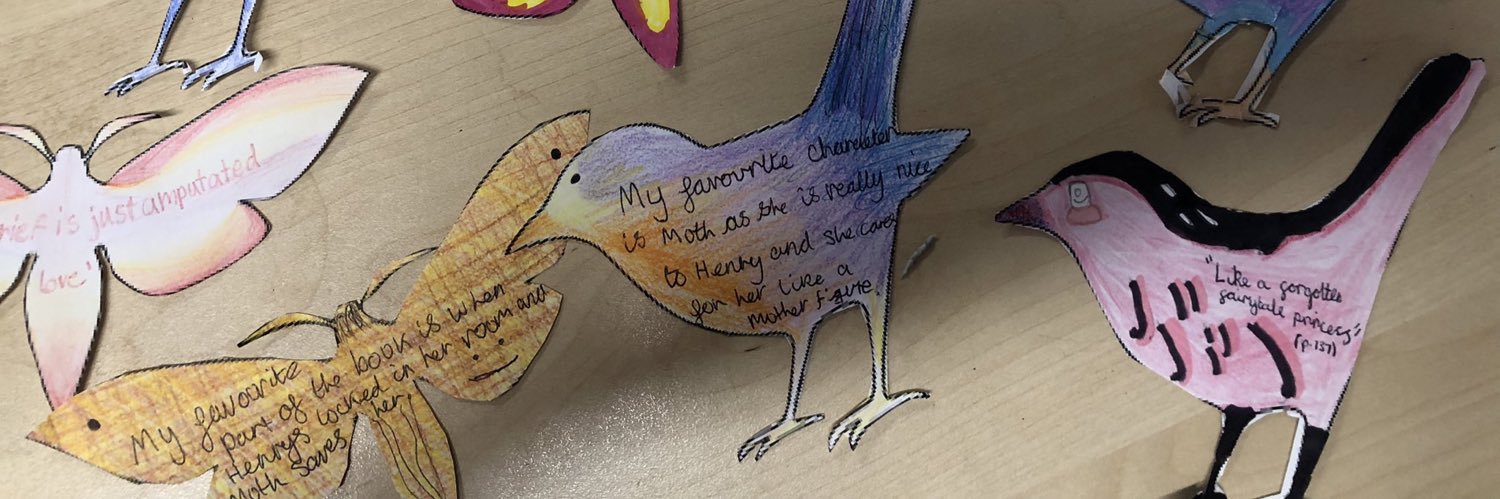 rief is just amputated
love'
My favourite
part of the book is when
Henrys locked in her room and
Moth saves her.
My favourite character
is Moth as she is really nice
to Henry and she cares
for her like a
Mother Figure
"Like a forgotten
fairytale princess"
(p.157)